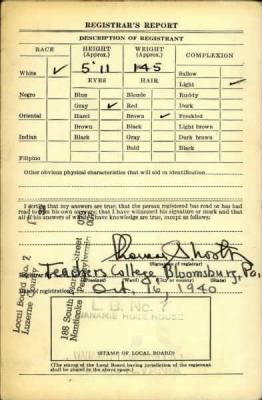 REGISTRAR'S REPORT
DESCRIPTION OF REGISTRANT
RACE
HEIGHT (Approx.)
WEIGHT (Approx.)
COMPLEXION
White ✓
5' 11
145
Sallow
EYES
HAIR
Light ✓
Negro
Blue
Blonde
Ruddy
Gray ✓
Red
Dark
Oriental
Hazel
Brown ✓
Freckled
Brown
Black
Light brown
Indian
Black
Gray
Dark brown
Bald
Black
Filipino
Other obvious physical characteristics that will aid in identification
I certify that my answers are true; that the person registered has read or has had
read to him his own answers; that I have witnessed his signature or mark and that
all of his answers of which I have knowledge are true, except as follows:
(Signature of registrar)
Registrar for
Teachers College Bloomsburg, Pa.
Date of registration
Oct. 16, 1940
Local Board No. 7
Luzerne County
186 South
Nanticoke
L. B. No. 7
WANAMIE HOSE HOUSE
(STAMP OF LOCAL BOARD)
(The stamp of the Local Board having jurisdiction of the registrant
shall be placed in the above space.)